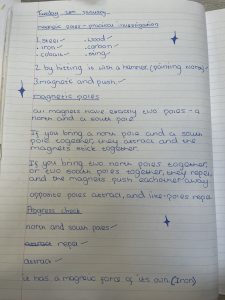 Tuesday 14th January
magnetic poles - practical investigation
1. steel ✓ • wood ✓
• iron ✓ • carbon ✓
• cobalt • zinc ✓
2. by hitting it with a hammer (pointing north) ✓
3. magnets and push ✓
magnetic poles
all magnets have exactly two poles - a
north and a south pole
If you bring a north pole and a south
pole together, they attract and the
magnets stick together.
If you bring two north poles together,
or two south poles together, they repel,
and the magnets push eachother away
opposite poles attract, and like-poles repel
Progress check
north and south poles ✓
attract repel ✓
attract ✓
it has a magnetic force of its own (Iron)